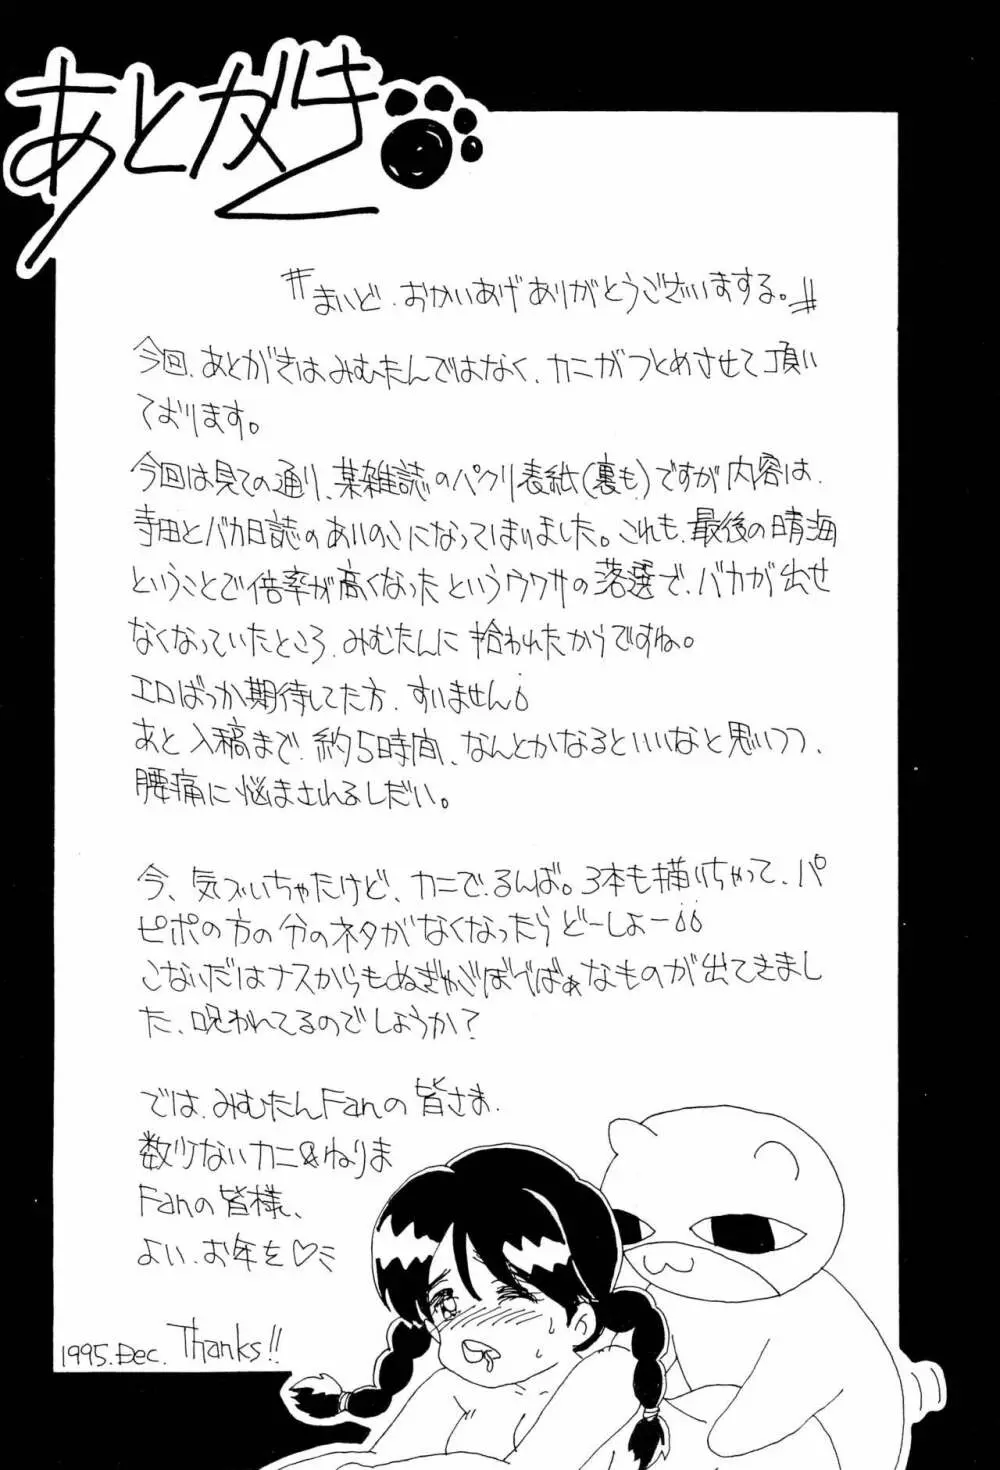 あとがき
〃まいど、おかいあげありがとうございまする。〃
今回、あとがきは、みむたんではなく、カニがつとめさせて頂い
ております。
今回は見ての通り、某雑誌のパクリ表紙(裏も)ですが内容は、
寺田とバカ日誌のあいのこになってしまいました。これも、最後の晴海
ということで倍率が高くなったというウワサの落選で、バカが出せ
なくなっていたところ、みむたんに拾われたからですね。
エロばっか期待してた方、すいません
あと入稿まで、約5時間、なんとかなるといいなと思いつつ、
腰痛に悩まされるしだい。
今、気づいちゃたけど、カニで、るんば。3本も描いちゃって、パ
ピポの方の分のネタがなくなったらどーしよー
こないだはナスからも
なものが出てきまし
た、呪われてるのでしょうか?
では、みむたんFanの皆さま、
数少ないカニ&ねりま
Fanの皆様、
よい、お年を♡ミ
1995.Dec. Thanks!!